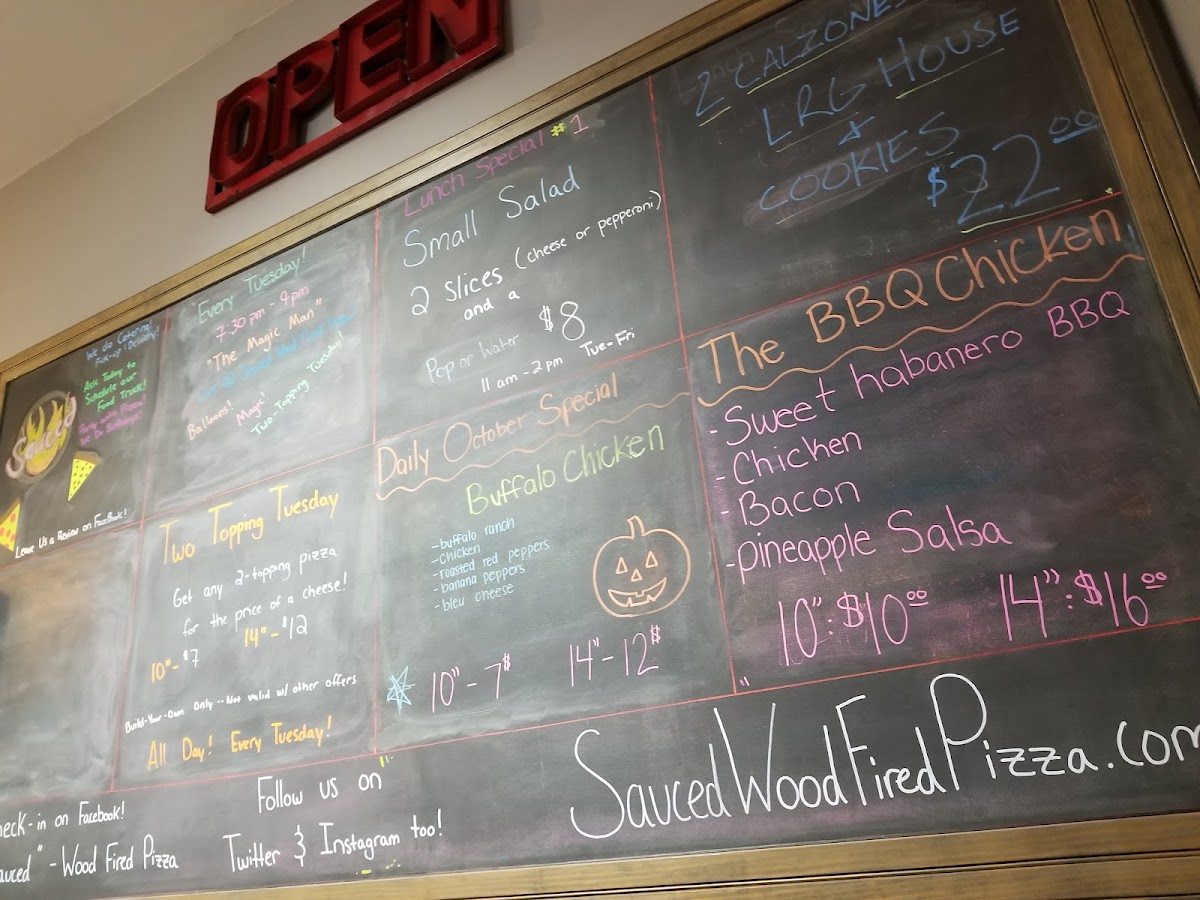 OPEN
We do Catering
Pick-up / Delivery!
Ask Today to
Schedule our
Food Truck!
Party with Pizza!
We Do Birthdays!
Sauced
Leave Us a Review on FaceBook!
Every Tuesday!
7:30 pm - 9 pm
"The Magic Man"
Balloons!
Magic!
Two-Topping Tuesday!
Lunch Special #1
Small Salad
2 slices (cheese or pepperoni)
and a
Pop or Water $8
11 am - 2 pm Tue-Fri
2 CALZONES
LRG HOUSE
+
COOKIES
$22.00
Two Topping Tuesday
Get any 2-topping pizza
for the price of a cheese!
10"-$7 14"-$12
Build-Your-Own Only -- Not valid w/ other offers
All Day! Every Tuesday!
Daily October Special
Buffalo Chicken
-buffalo ranch
-chicken
-roasted red peppers
-banana peppers
-bleu cheese
10"-7$ 14"-12$
The BBQ Chicken
-Sweet habanero BBQ
-Chicken
-Bacon
-pineapple Salsa
10":$10.00 14":$16.00
heck-in on Facebook!
auced"-Wood Fired Pizza
Follow us on
Twitter & Instagram too!
SaucedWoodFiredPizza.com